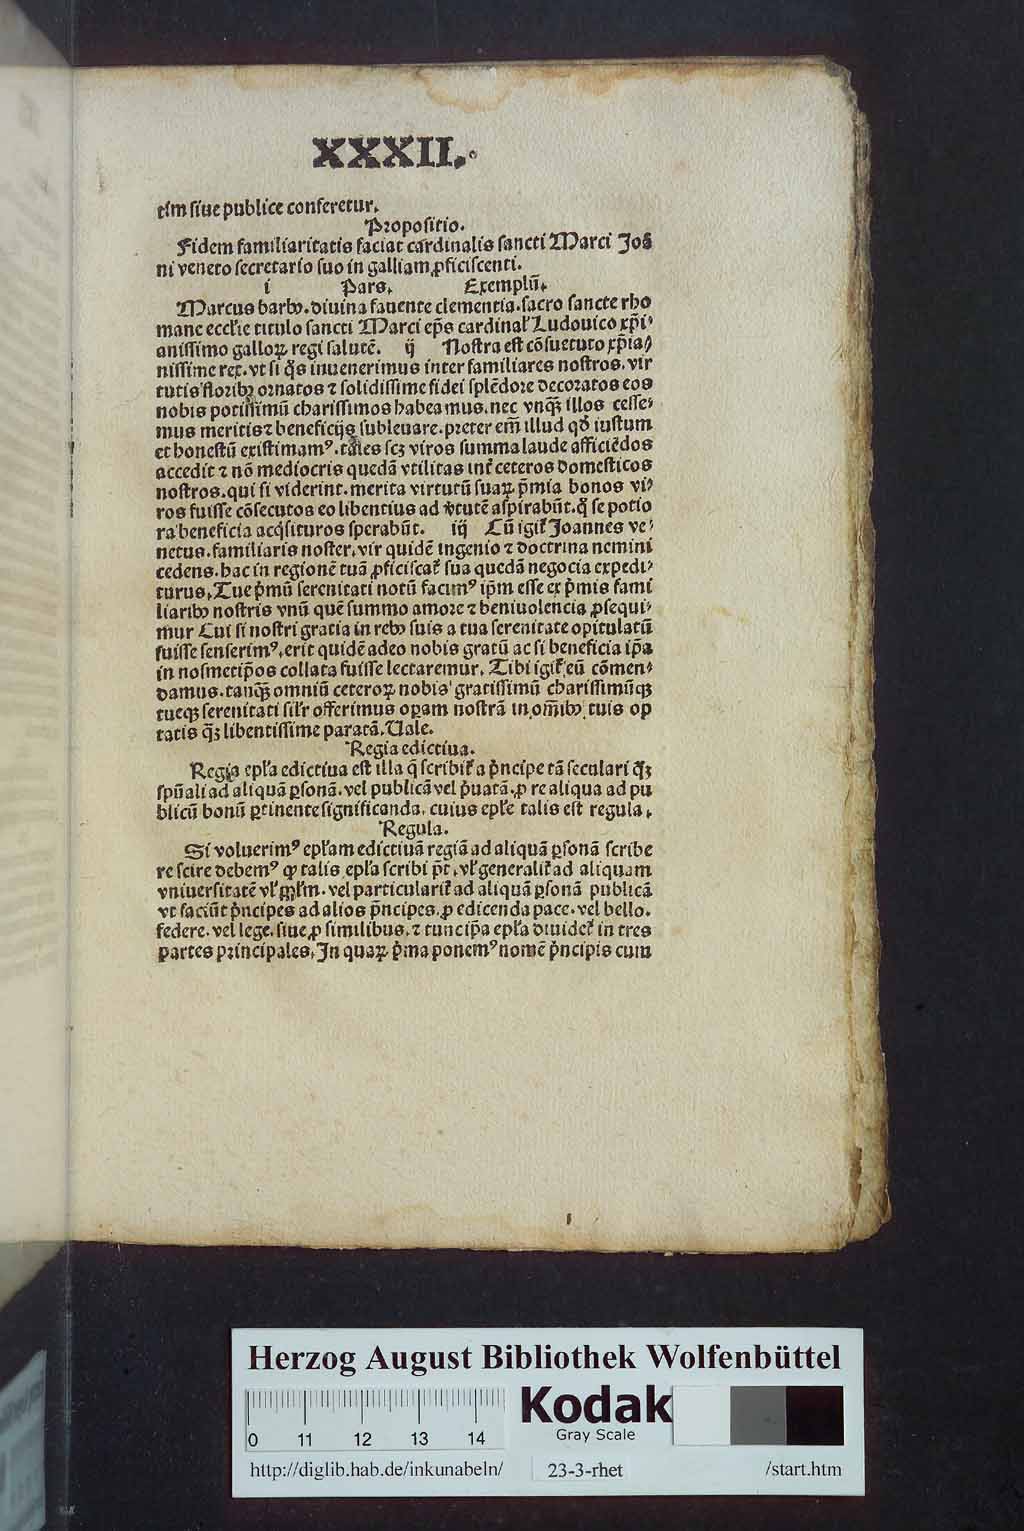 XXXII.
tim siue publice conferetur.
Propositio.
Fidem familiaritatis faciat cardinalis sancti Marci Joā
ni veneto secretario suo in galliam ꝓficiscenti.
i Pars. Exemplū.
Marcus barbo. diuina fauente clementia. sacro sancte rho
mane eccl'ie titulo sancti Marci ep̄s cardinal' Ludouico xp̄i⸗
anissimo galloꝝ regi salutē. ij Nostra est cōsuetuto xp̄ia⸗
nissime rex. vt si q̄s inuenerimus inter familiares nostros. vir
tutis floribꝰ ornatos ⁊ solidissime fidei splēdore decoratos eos
nobis potissimū charissimos habeamus. nec vnq̄ꝫ illos cesse⸗
mus meritis ⁊ beneficijs subleuare. preter em̄ illud qd̓ iustum
et honestū existimamꝰ. tales scꝫ viros summa laude afficiēdos
accedit ⁊ nō mediocris quedā vtilitas int̓ ceteros domesticos
nostros. qui si viderint. merita virtutū suaꝝ p̄mia bonos vi⸗
ros fuisse cōsecutos eo libentius ad v̓tutē aspirabūt. q̊ se potio
ra beneficia acq̇situros sperabūt. iij Cū igit̓ Joannes ve⸗
netus. familiaris noster. vir quidē ingenio ⁊ doctrina nemini
cedens. hac in regionē tuā ꝓficiscat̓ sua quedā negocia expedi⸗
turus. Tue p̓mū serenitati notū facimꝰ ip̄m esse ex p̓mis fami
liaribꝰ nostris vnū quē summo amore ⁊ beniuolencia ꝓsequi⸗
mur Cui si nostri gratia in rebꝰ suis a tua serenitate opitulatū
fuisse senserimꝰ. erit quidē adeo nobis gratū ac si beneficia ip̄a
in nosmetip̄os collata fuisse lectaremur. Tibi igit̓ eū cōmen⸗
damus. tanq̄ꝫ omniū ceteroꝝ nobis gratissimū charissimūqꝫ
tueqꝫ serenitati sil'r offerimus oꝑam nostrā in om̄ibꝰ tuis op
tatis q̄ꝫ libentissime paratā. Uale.
Regia edictiua.
Regia epl'a edictiua est illa q̄ scribit̓ a p̓ncipe tā seculari q̄ꝫ
spūali ad aliquā ꝑsonā. vel publicā vel p̓uatā. ꝓ re aliqua ad pu
blicū bonū ꝑtinente significanda. cuius epl'e talis est regula.
Regula.
Si voluerimꝰ epl'am edictiuā regiā ad aliquā ꝑsonā scribe
re scire debemꝰ ꝙ talis epl'a scribi pōt. vl' generalit̓ ad aliquam
vniuersitatē vl' ppl'm. vel particularit̓ ad aliquā ꝑsonā publicā
vt faciūt p̓ncipes ad alios p̓ncipes. ꝓ edicenda pace. vel bello.
federe. vel lege. siue ꝓ similibus. ⁊ tunc ip̄a epl'a diuidet̓ in tres
partes principales. In quaꝝ p̓ma ponemꝰ nomē p̓ncipis cum
Herzog August Bibliothek Wolfenbüttel
0 11 12 13 14
Kodak
Gray Scale
http://diglib.hab.de/inkunabeln/ 23-3-rhet /start.htm